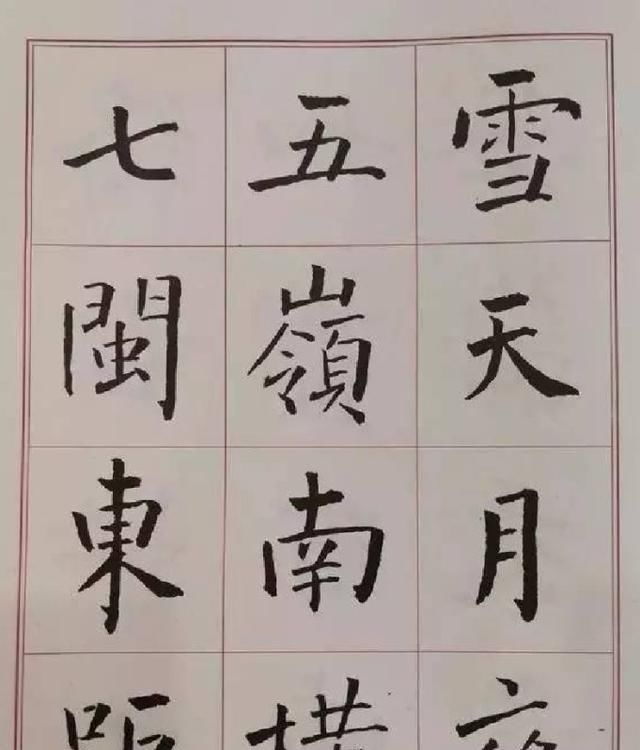 雪天月
五嶺南
七閩東